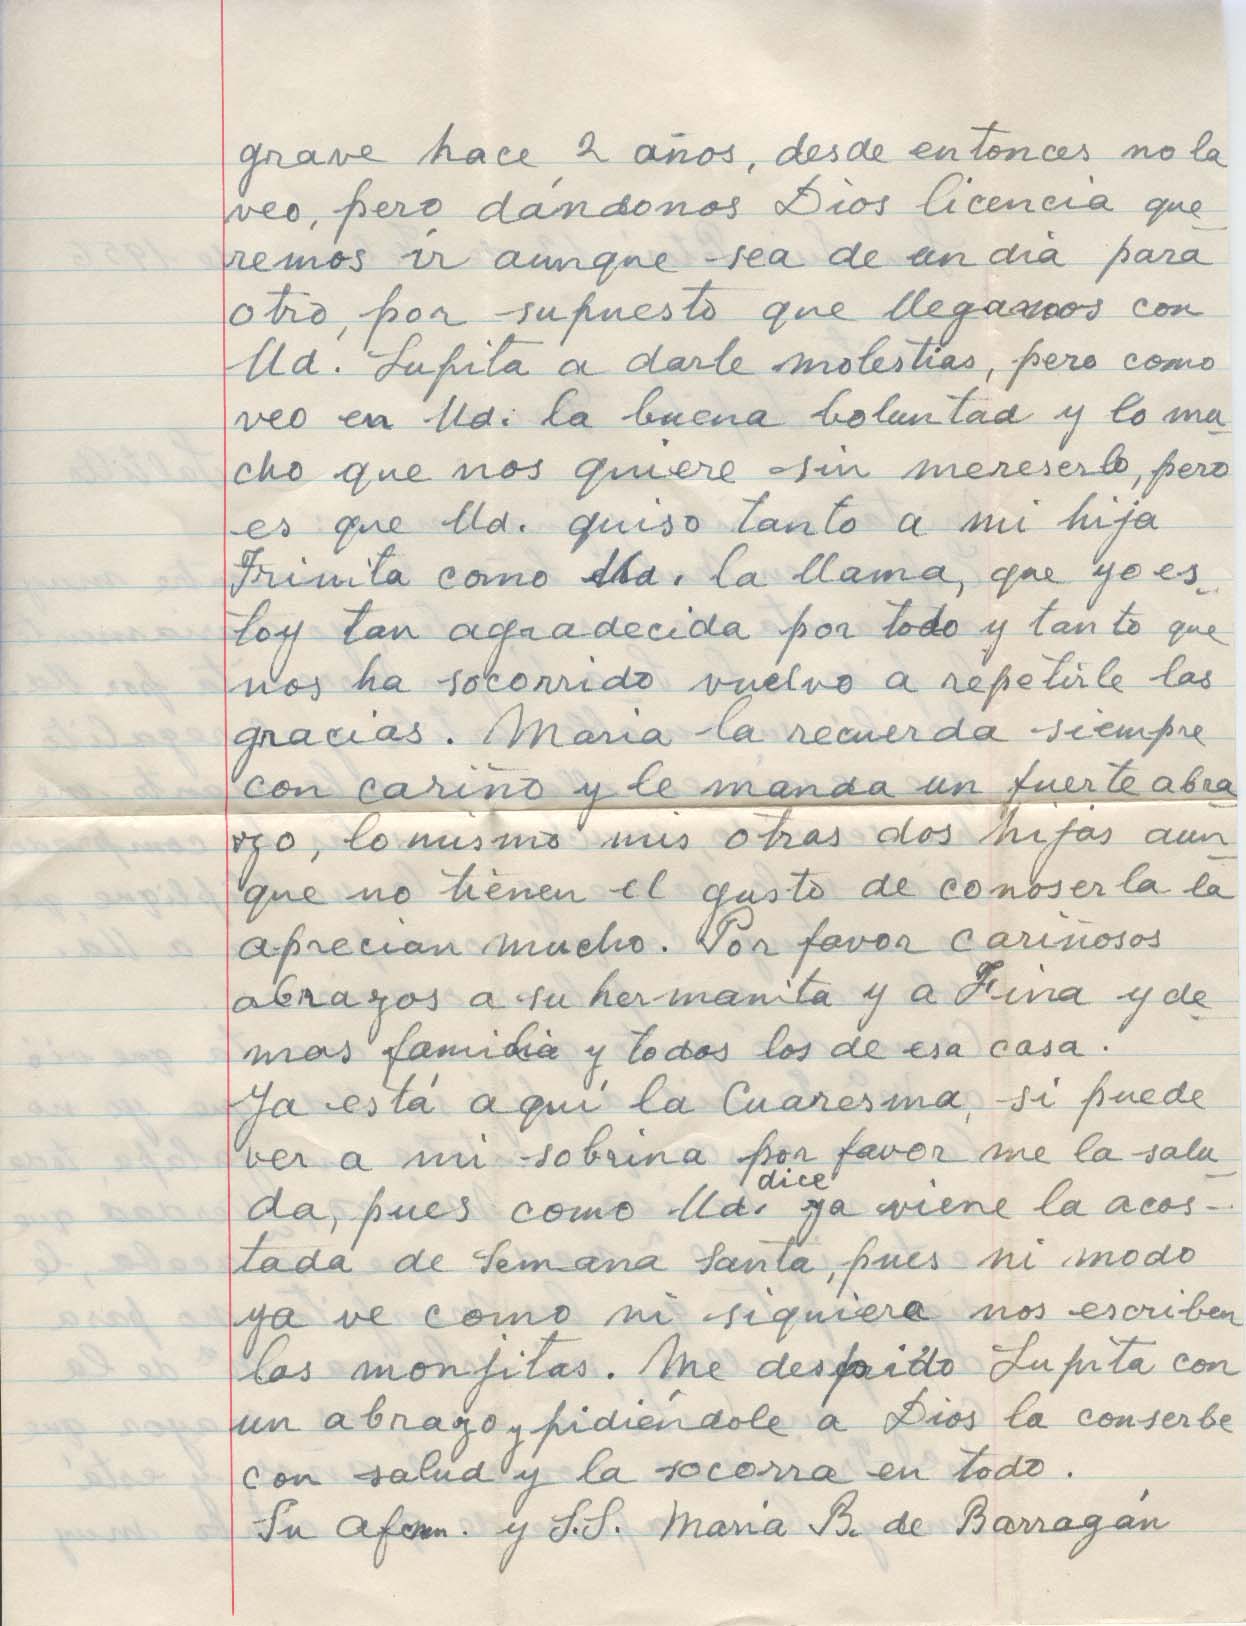 grave hace 2 años, desde entonces no la
veo, pero dándonos Dios licencia que
remos ir aunque sea de un dia para
otro, por supuesto que llegamos con
Ud. Lupita a darle molestias, pero como
veo en Ud. la buena boluntad y lo mu
cho que nos quiere sin mereserlo, pero
es que Ud. quiso tanto a mi hija
Trinita como Ud. la llama, que yo es
toy tan agradecida por todo y tanto que
nos ha socorrido vuelvo a repetirle las
gracias. Maria la recuerda siempre
con cariño y le manda un fuerte abra
zo, lo mismo mis otras dos hijas aun
que no tienen el gusto de conoserla la
aprecian mucho. Por favor cariñosos
abrazos a su hermanita y a Fina y de
mas familia y todos los de esa casa.
Ya está aquí la Cuaresma, si puede
ver a mi sobrina por favor me la salu
da, pues como Ud. dice ya viene la acos-
tada de Semana Santa, pues ni modo
ya ve como ni siquiera nos escriben
las monjitas. Me despido Lupita con
un abrazo y pidiéndole a Dios la conserbe
con salud y la socorra en todo.
Su afcma. y S.S. María B. de Barragán